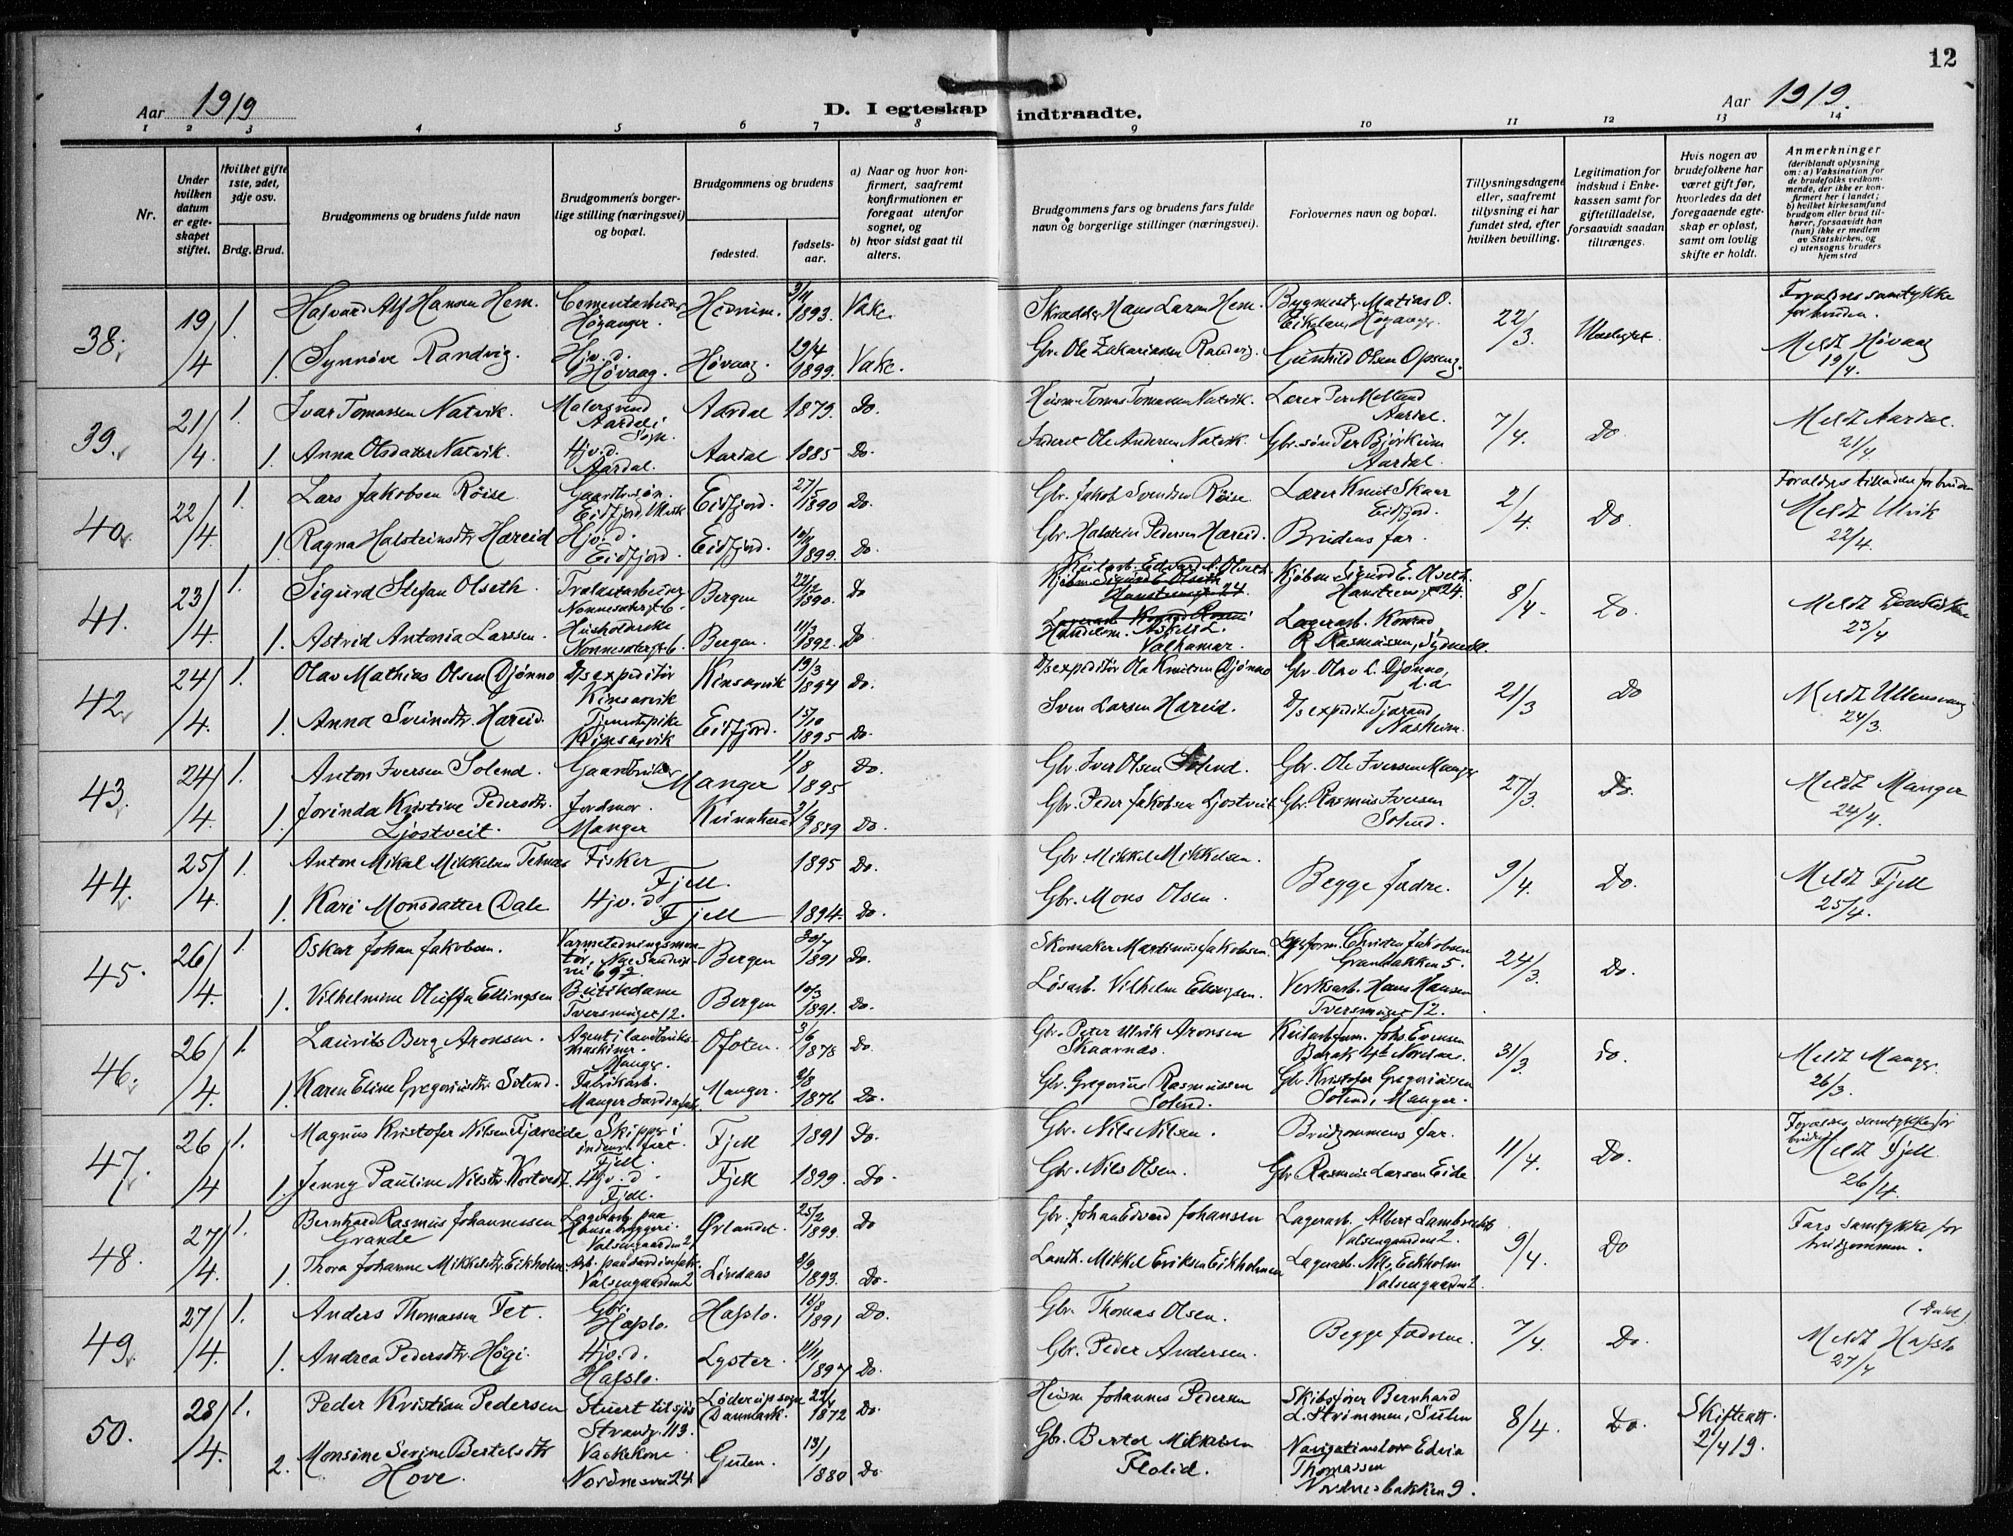 12
Aar 1919
D. I egteskap indtraadte.
Aar 1919.
1 2 3 4 5 6 7 8 9 10 11 12 13 14
Nr.
Under hvilken datum er egteskapet stiftet.
Hvilket gifte 1ste, 2det, 3dje osv.
Brdg. Brud.
Brudgommens og brudens fulde navn
Brudgommens borgerlige stilling (næringsvei) og bopæl.
Brudgommens og brudens
fødested.
fødselsaar.
a) Naar og hvor konfirmert, saafremt konfirmationen er foregaat utenfor sognet, og
b) hvor sidst gaat til alters.
Brudgommens fars og brudens fars fulde navn og borgerlige stillinger (næringsvei).
Forlovernes navn og bopæl.
Tillysningsdagene eller, saafremt tillysning ei har fundet sted, efter hvilken bevilling.
Legitimation for indskud i Enkekassen samt for giftetilladelse, forsaavidt saadan tiltrænges.
Hvis nogen av brudefolkene har været gift før, hvorledes da det foregaaende egteskap er opløst, samt om lovlig skifte er holdt.
Anmerkninger
(deriblandt oplysning om: a) Vaksination for de brudefolks vedkommende, der ikke er konfirmert her i landet; b) hvilket kirkesamfund brudgom eller brud tilhører, forsaavidt han (hun) ikke er medlem av Statskirken, og c) utensogns bruders hjemsted
38. 19/4 1. Halvard Alf Hansen Hem. Høyanger. 1893. Vake. Skrædder Hans Larsen Hem. Bygmestr. Matias O. Eikeland, Høyanger. 22/3
1. Synnøve Randvig. Hjv. d. Høvaag. Høvaag. 19/4 1899. Vake. Gbr. Ole Zakariassen Randvig. Gunhild Olsen Opseng. Meldt Høvaag 19/4.
39. 21/4. 1. Ivar Tomassen Natvik. Malersvend Aardal i Sogn. Aardal 1879. Do. Husm. Tomas Tomassen Natvik. Lærer Per Molland Aardal. 7/4. Do
1. Anna Olsdatter Natvik. Hjv. d. Aardal. Aardal 1885 Do. Ole Andersen Natvik. Gbr. søn Per Bjørkum Aardal. Meldt Aardal. 21/4
40. 22/4. 1. Lars Jakobsen Röise Gaardbr. søn. Eidfjord, Ulvik Eidfjord. 27/5 1890 Do. Gbr. Jakob Svendsen Röise Lærer Knut Skaar Eidfjord. 2/4 Do.
1. Ragna Halsteinsdtr. Hæreid Hjv. d. Eidfjord. Eidfjord. 1899. Do. Gbr. Halstein Pedersen Hæreid. Brudens far. Meldt Ulvik 22/4.
41. 23/4. 1. Sigurd Stefan Olseth. Nonnesætergt. 6. Bergen 22/12 1890. Do Edvard A. Olseth. Kjøbm. Sigurd E. Olseth. Hansteensgt 24. 8/4. Do.
1. Astrid Antonia Larssen. Nonnesætergt. 6. Bergen. 11/3 1892. Do Valhamar. Lagerarb. Konrad R. Rasmussen, Meldt Domkirken 23/4
42. 24/4. 1. Olav Mathias Olsen Djönno D/s expeditör Kinsarvik Kinsarvik 19/3 1894 Do. D/s expeditör Ole Knutsen Djönno Gbr. Olav L. Djönno, d. d. 21/3 Do
1. Anna Sveinsdtr. Hæreid. Tjenestepike Kinsarvik Eidfjord. 15/10 1895 Do. Sven Larsen Hæreid. D/s expedit. Tjærand Naskeim. Meldt Ullensvang 24/3.
43. 24/4. 1. Anton Iversen Solend. Gaardbruker Manger 1/8 1895 Do. Gbr. Iver Olsen Solend. Gbr. Ole Iversen Manger 27/3. Do.
1. Jorinda Kristine Pedersdtr. Ljostveit. Jordmor. Manger Kvinnherad 1889 Do. Gbr. Peder Jakobsen Ljostveit Gbr. Rasmus Iversen Solend. Meldt Manger 24/4.
44. 25/4. 1. Anton Mikal Mikkelsen Fisker Fjell. 1895 Do. Gbr. Mikkel Mikkelsen. Begge fædre. 9/4. Do.
1. Kari Monsdatter Dale Hjv. d. Fjell 1894. Do. Gbr. Mons Olsen. Meldt Fjell 25/4.
45. 26/4. 1. Oskar Johan Jakobsen. Varmeledningsmontør, Nye Sandviksvei 69 Bergen 30/7 1891 Do. Skomaker Martinus Jakobsen Christen Jakobsen Granbakken 5. 24/3. Do.
1. Vilhelmine Oluffa Ellingsen Butikdame Tversmuget 12. Bergen 10/3 1891. Do. Løsarb. Vilhelm Ellingsen. Verksarb. Hans Hansen Tversmuget 12.
46. 26/4. 1. Laurits Berg Aronsen. Agent i landbruksmaskiner. Manger. Ofoten. 3/6 1878 Do. Gbr. Peter Ulrik Aronsen Skaarnes. Johs. Evensen 31/3. Do.
1. Karen Eline Gregoriusdtr. Solend. Fabrikarb. Manger Manger. 2/8 1876 Do. Gbr. Gregorius Rasmussen Solend. Gbr. Kristofer Gregoriussen Solend, Manger. Meldt Manger. 26/3.
47. 26/4 1. Magnus Kristofer Nilsen Fjæreide Skipper i indenr. fart. Fjell. Fjell 1891 Do. Gbr. Nils Nilsen. Brudgommens far. 11/4. Do. Forældres samtykke for bruden
1. Jenny Pauline Nilsdtr. Kortvedt. Hjv. d. Fjell. Fjell 1899. Do. Gbr. Nils Olsen. Gbr. Rasmus Larsen Eide Meldt Fjell 26/4.
48. 27/4. 1. Bernhard Rasmus Johannessen Grande Lagerarb. paa Hansabryggeri. Valsengaarden 2, Ørlandet. 25/2 1899. Do Gbr. Johan Edvard Johansen Lagerarb. Albert Lambrechts Valsengaarden 2. 9/4. Do Fars samtykke for brudgommen.
1. Thora Johanne Mikkelsdtr. Eikholmen. Arb. paa sardinfabr. Valsengaarden 2 Lindaas 8/9 1893. Do. Landh. Mikkel Eriksen Eikholmen Lagerarb. Nils Eikholm Valsengaarden 2.
49. 27/4. 1. Anders Thomassen Fet. Gbr. Hafslo. Hafslo. 16/8 1891 Do. Gbr. Thomas Olsen. Begge fædrene. 7/4. Do.
1. Andrea Pedersdtr. Högi. Hjv. d. Hafslo. Lyster. 1897 Do. Gbr. Peder Andersen. Meldt Hafslo 27/4
50. 28/4. 1. Peder Kristian Pedersen Stuert til sjøs Strandg. 113. Danmark. 1872 Do. Husm. Johannes Pedersen Skibsfører Bernhard L. Strömmen, 8/4. Do. Skifteatt. 2/4 19.
2. Monsine Serine Bertelsdtr. Hove. Vaskekone Nordnesvei 24 Gulen. 13/1 1880 Do Gbr. Bertel Mikkelsen Flolid. Thomassen Nordnesbakken 9.